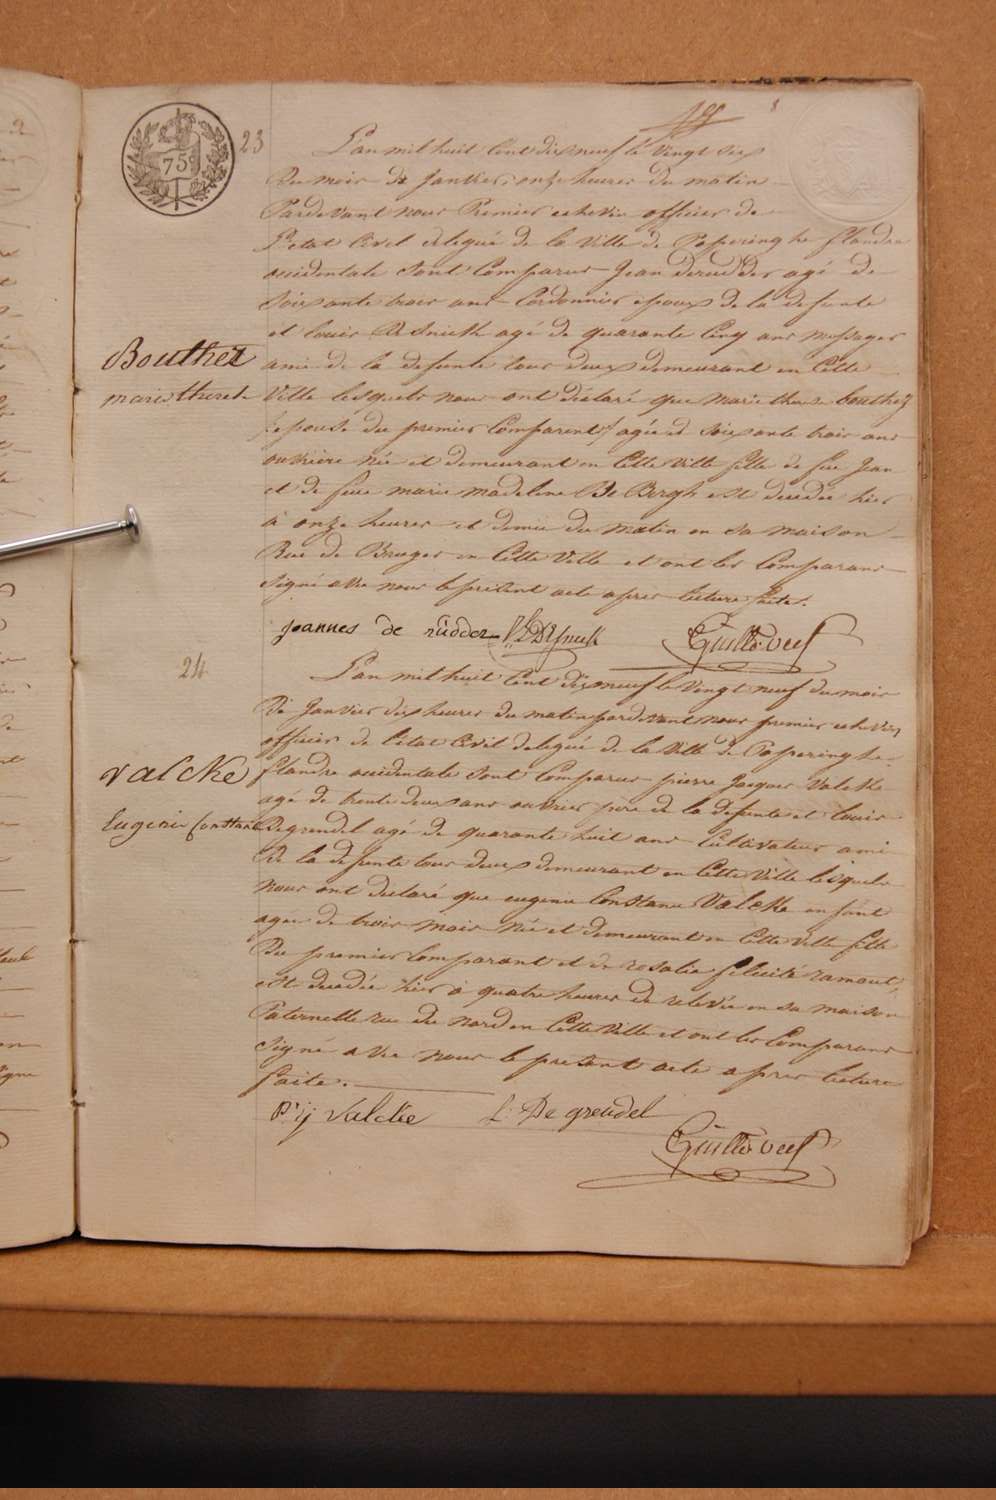 75
23
L'an mil huit Cent dix neuf le Vingt six
Du mois de Janvier onze heures du matin
Pardevant nous Premier echevin officier de
l'etat Civil delegué de la Ville de Poperinghe flandre
occidentale Sont Comparus Jean derudder agé de
Soixante trois ans Cordonnier epoux de la defunte
et louis Desmickt agé de quarante Cinq ans messager
Bouthez
marie therese
ami de la defunte tous deux demeurant en Cette
Ville lesquels nous ont déclaré que marie therese bouthez
epouse du premier Comparent agée de Soixante trois ans
ouvrière née et demeurant en Cette Ville fille de feu Jean
et de feue marie madeleine De Bergh est decedée hier
à onze heures et demie du matin en sa maison
Rue de Bruges en Cette Ville et ont les Comparans
Signé avec nous le présent acte apres lecture faite.
joannes de rüdder
24
L'an mil huit Cent dix neuf le Vingt neuf du mois
De Janvier dix heures du matin pardevant nous premier echevin
officier de l'état Civil delegué de la Ville de Poperinghe
Valcke
Eugenie Constance
flandre occidentale Sont Comparus pierre Jacques Valcke
agé de trente deux ans ouvrier père de la defunte et louis
Degrendel agé de quarante huit ans Cultivateur ami
De la defunte tous deux demeurant en Cette Ville lesquels
nous ont declaré que eugenie Constance Valcke enfant
agée de trois mois Née et demeurant en Cette Ville fille
Du premier Comparant et de rosalie felicité ramaut,
est decedée hier à quatre heures de relevée en sa maison
Paternelle rue du nord en Cette Ville et ont les Comparans
Signé avec nous le present acte apres lecture
faite.
P: ij Valcke L: De grendel